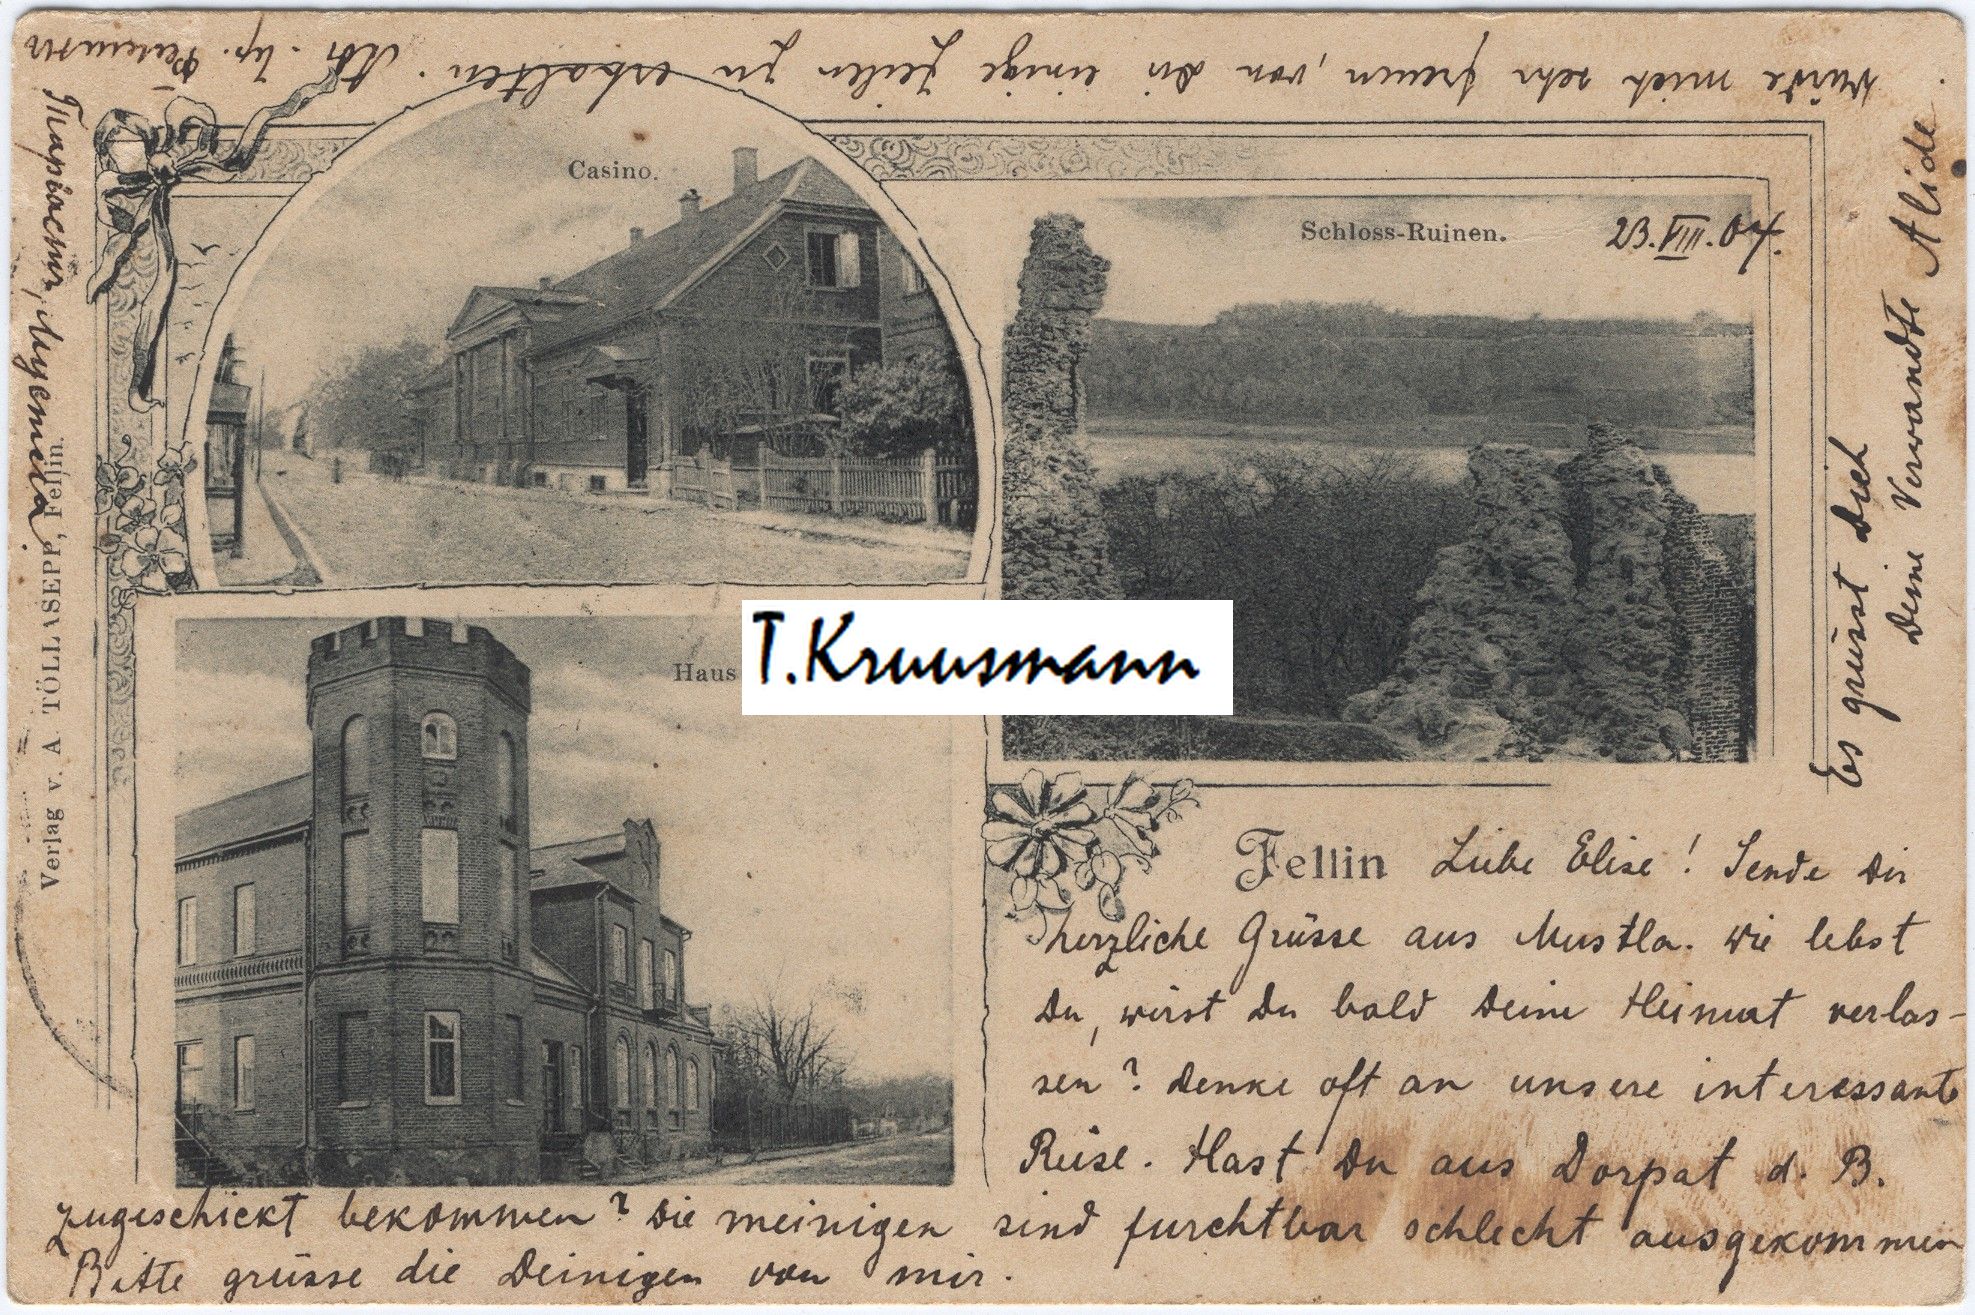 Casino.
Schloss-Ruinen.
23.VIII.04.
Haus
T.Kruusmann
Verlag v. A. TÖLLASEPP, Fellin.
Fellin
Liebe Elise! Sende Dir
herzliche Grüsse aus Mustla. Wie lebst
Du, wirst Du bald Deine Heimat verlas-
sen? Denke oft an unsere interessante
Reise. Hast Du aus Dorpat d. B.
zugeschickt bekommen? Die meinigen sind furchtbar schlecht ausgekommen
Bitte grüsse die Deinigen von mir.
Es grüsst Dich
Deine Verwandte Alide
Würde mich sehr freuen, von dir einige Zeilen zu erhalten. Adr.